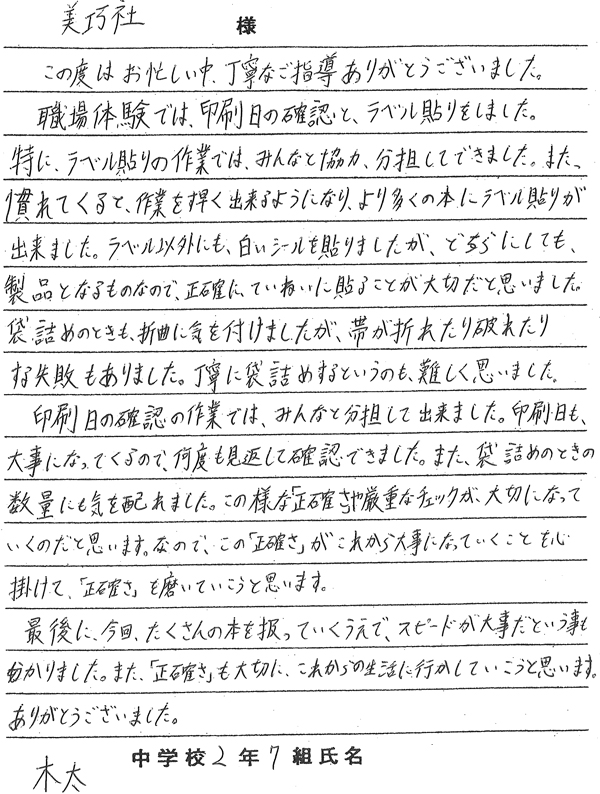 美巧社 様
この度はお忙しい中、丁寧なご指導ありがとうございました。
職場体験では、印刷日の確認と、ラベル貼りをしました。
特に、ラベル貼りの作業では、みんなと協力、分担してできました。また、
慣れてくると、作業を早く出来るようになり、より多くの本にラベル貼りが
出来ました。ラベル以外にも、白いシールを貼りましたが、どちらにしても、
製品となるものなので、正確に、ていねいに貼ることが大切だと思いました。
袋詰めのときも、折曲に気を付けましたが、帯が折れたり破れたり
する失敗もありました。丁寧に袋詰めするというのも、難しく思いました。
印刷日の確認の作業では、みんなと分担して出来ました。印刷日も、
大事になってくるので、何度も見返して確認できました。また、袋詰めのときの
数量にも気を配れました。この様な「正確さ」や厳重なチェックが、大切になって
いくのだと思います。なので、この「正確さ」がこれから大事になっていくことも心
掛けて、「正確さ」も磨いていこうと思います。
最後に、今回、たくさんの本を扱っていくうえで、スピードが大事だという事も
分かりました。また、「正確さ」も大切に、これからの生活に行かしていこうと思います。
ありがとうございました。
中学校2年7組氏名
木太